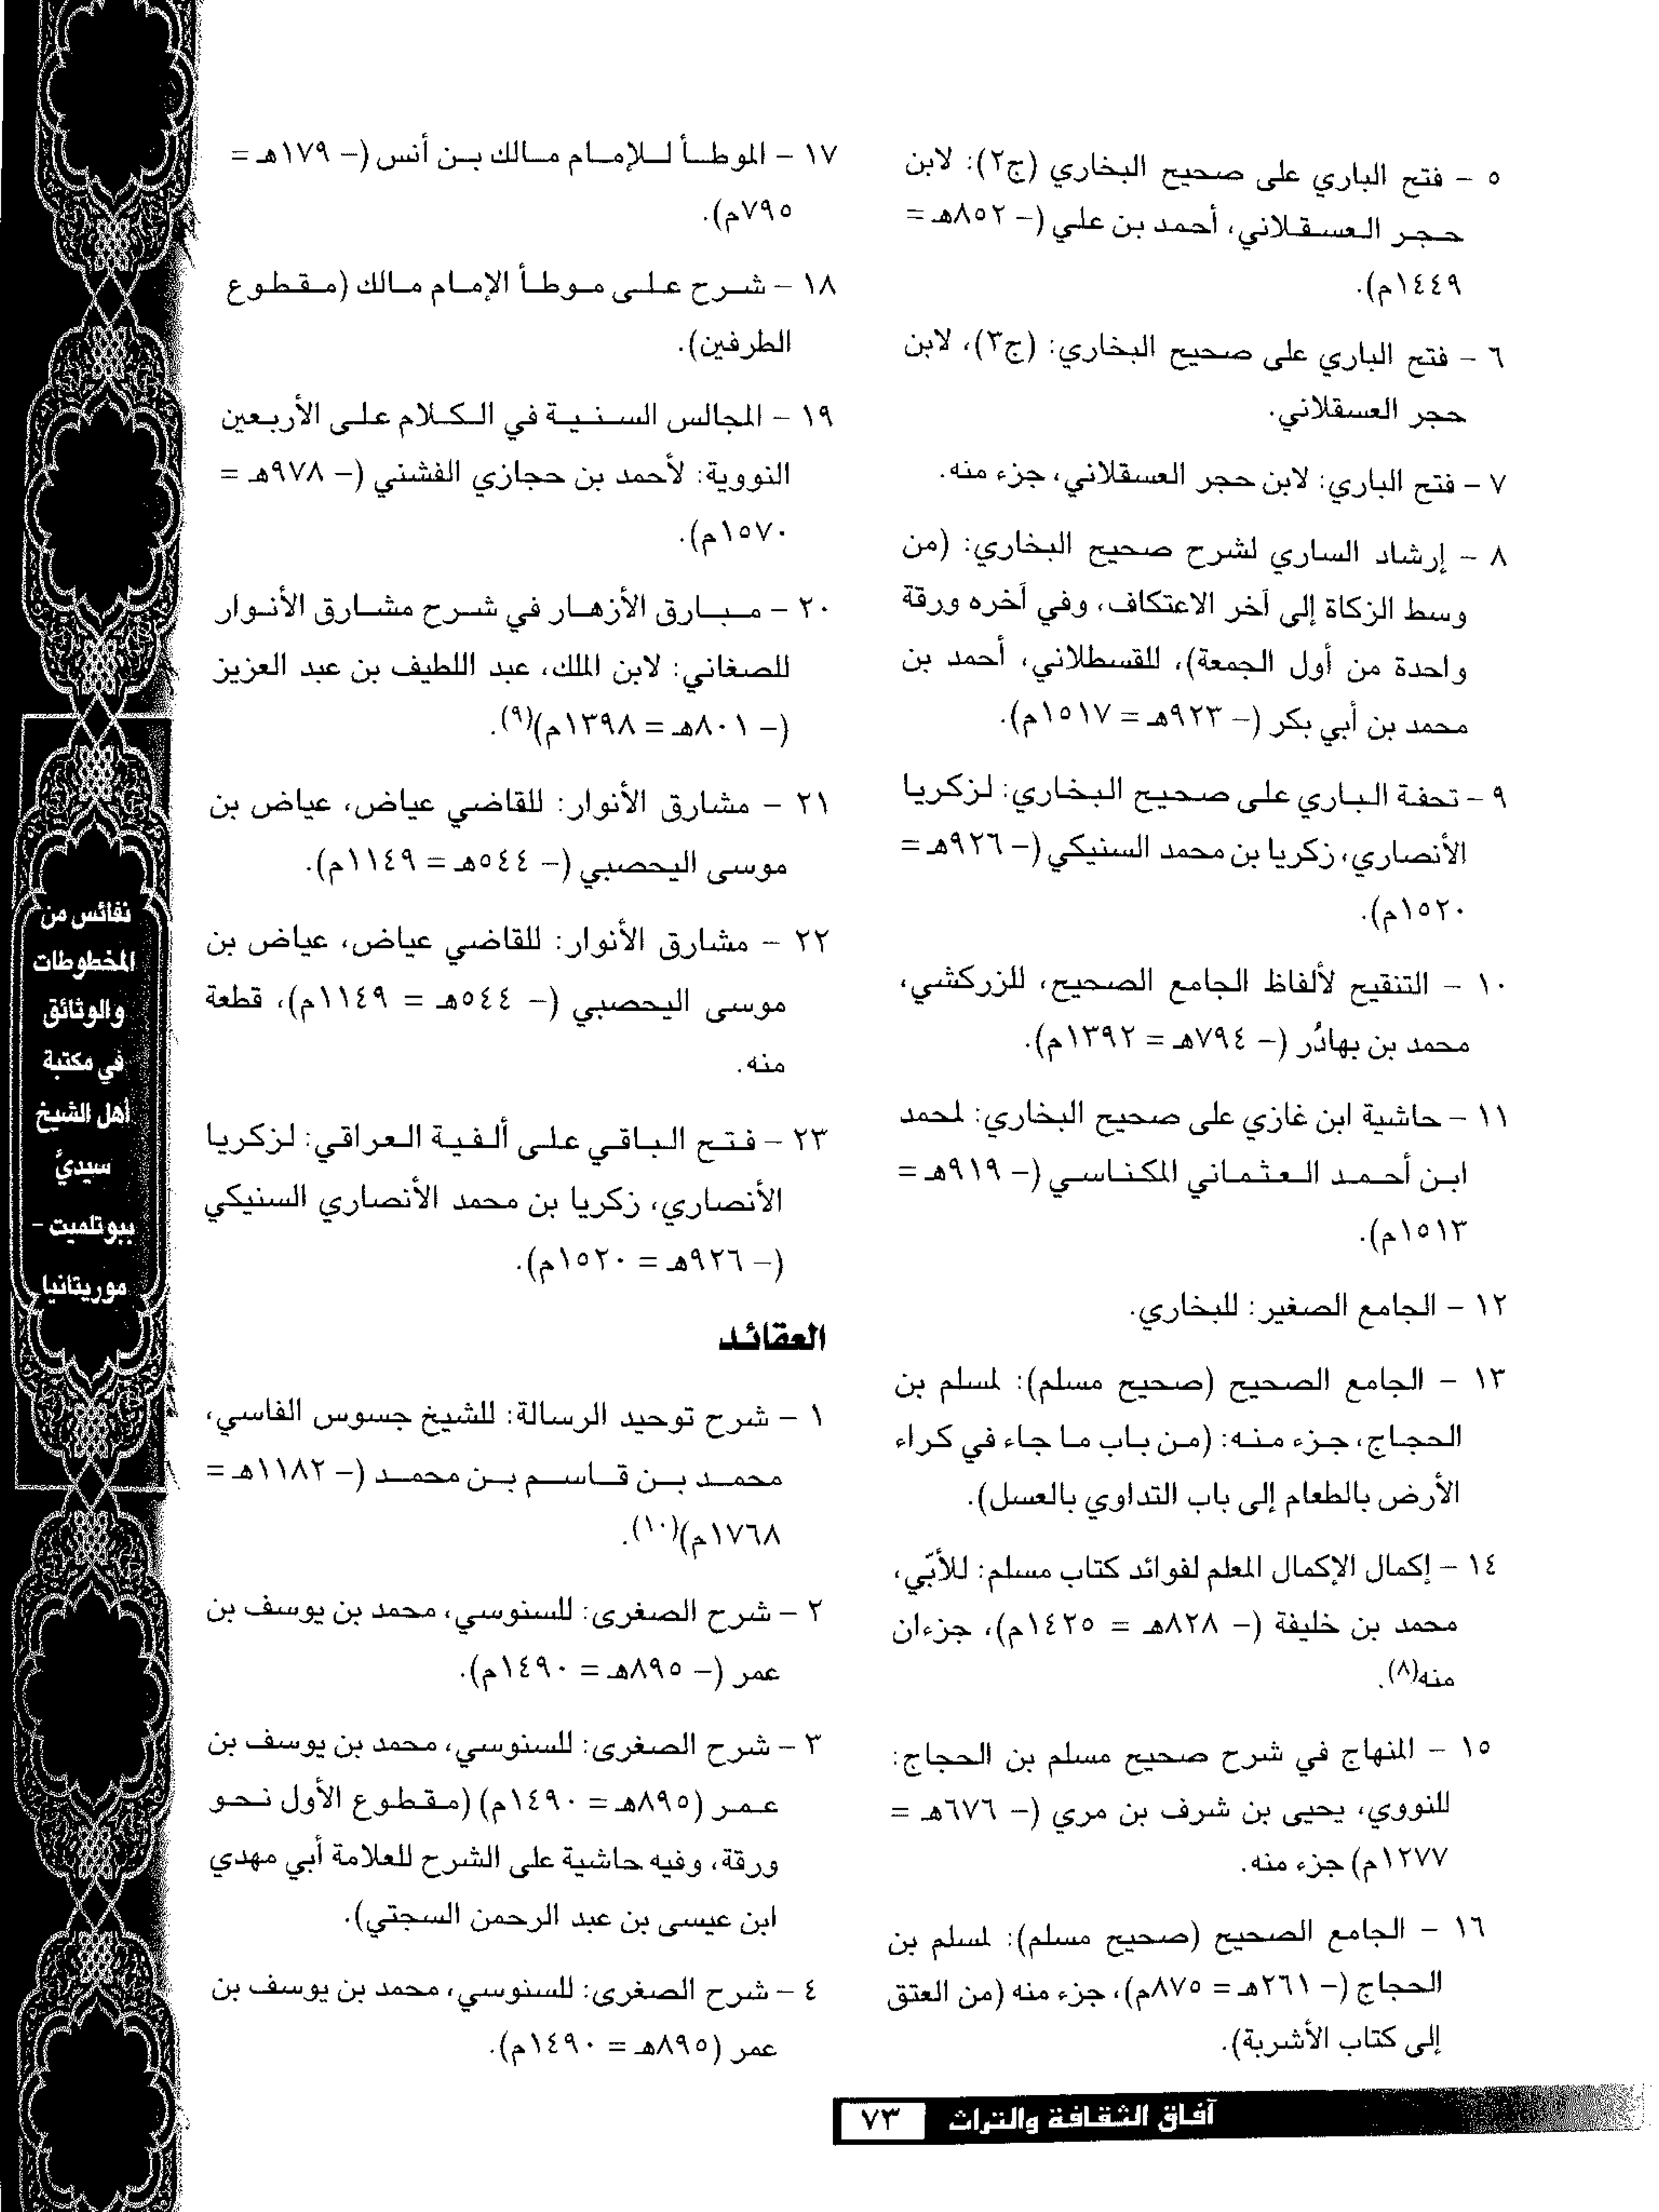 ٥ – فتح الباري على صحيح البخاري (ج٢): لابن
حجر العسقلاني، أحمد بن علي (– ٨٥٢هـ =
١٤٤٩م).
٦ – فتح الباري على صحيح البخاري: (ج٣)، لابن
حجر العسقلاني.
٧ – فتح الباري: لابن حجر العسقلاني، جزء منه.
٨ – إرشاد الساري لشرح صحيح البخاري: (من
وسط الزكاة إلى آخر الاعتكاف، وفي آخره ورقة
واحدة من أول الجمعة)، للقسطلاني، أحمد بن
محمد بن أبي بكر (– ٩٢٣هـ = ١٥١٧م).
٩ – تحفة الباري على صحيح البخاري: لزكريا
الأنصاري، زكريا بن محمد السنيكي (– ٩٢٦هـ =
١٥٢٠م).
١٠ – التنقيح لألفاظ الجامع الصحيح، للزركشي،
محمد بن بهادُر (– ٧٩٤هـ = ١٣٩٢م).
١١ – حاشية ابن غازي على صحيح البخاري: لمحمد
ابن أحمد العثماني المكناسي (– ٩١٩هـ =
١٥١٣م).
١٢ – الجامع الصغير: للبخاري.
١٣ – الجامع الصحيح (صحيح مسلم): لمسلم بن
الحجاج، جزء منه: (من باب ما جاء في كراء
الأرض بالطعام إلى باب التداوي بالعسل).
١٤ – إكمال الإكمال المعلم لفوائد كتاب مسلم: للأبّي،
محمد بن خليفة (– ٨٢٨هـ = ١٤٢٥م)، جزءان
منه(٨).
١٥ – المنهاج في شرح صحيح مسلم بن الحجاج:
للنووي، يحيى بن شرف بن مري (– ٦٧٦هـ =
١٢٧٧م) جزء منه.
١٦ – الجامع الصحيح (صحيح مسلم): لمسلم بن
الحجاج (– ٢٦١هـ = ٨٧٥م)، جزء منه (من العتق
إلى كتاب الأشربة).
١٧ – الموطأ للإمام مالك بن أنس (– ١٧٩هـ =
٧٩٥م).
١٨ – شرح على موطأ الإمام مالك (مقطوع
الطرفين).
١٩ – المجالس السنية في الكلام على الأربعين
النووية: لأحمد بن حجازي الفشني (– ٩٧٨هـ =
١٥٧٠م).
٢٠ – مبارق الأزهار في شرح مشارق الأنوار
للصغاني: لابن الملك، عبد اللطيف بن عبد العزيز
(– ٨٠١هـ = ١٣٩٨م)(٩).
٢١ – مشارق الأنوار: للقاضي عياض، عياض بن
موسى اليحصبي (– ٥٤٤هـ = ١١٤٩م).
٢٢ – مشارق الأنوار: للقاضي عياض، عياض بن
موسى اليحصبي (– ٥٤٤هـ = ١١٤٩م)، قطعة
منه.
٢٣ – فتح الباقي على ألفية العراقي: لزكريا
الأنصاري، زكريا بن محمد الأنصاري السنيكي
(– ٩٢٦هـ = ١٥٢٠م).
العقائد
١ – شرح توحيد الرسالة: للشيخ جسوس الفاسي،
محمد بن قاسم بن محمد (– ١١٨٢هـ =
١٧٦٨م)(١٠).
٢ – شرح الصغرى: للسنوسي، محمد بن يوسف بن
عمر (– ٨٩٥هـ = ١٤٩٠م).
٣ – شرح الصغرى: للسنوسي، محمد بن يوسف بن
عمر (٨٩٥هـ = ١٤٩٠م) (مقطوع الأول نحو
ورقة، وفيه حاشية على الشرح للعلامة أبي مهدي
ابن عيسى بن عبد الرحمن السجتي).
٤ – شرح الصغرى: للسنوسي، محمد بن يوسف بن
عمر (٨٩٥هـ = ١٤٩٠م).
نفائس من
المخطوطات
والوثائق
في مكتبة
أهل الشيخ
سيديَّ
ببوتلميت –
موريتانيا
آفاق الثقافة والتراث ٧٣